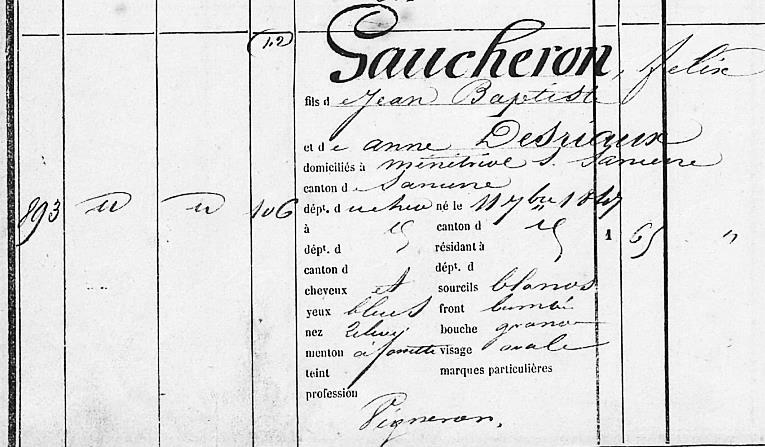 (12)
Gaucheron, felix
fils de Jean Baptiste
et de anne Desriaux
domiciliés à menetréol S. Sancerre
canton de Sancerre
893 106 dépt. du cher né le 11 7bre 1847
à id canton d id 1 65 "
dépt. d résidant à
canton d dépt. d
cheveux et sourcils blonds
yeux bleus front bombé
nez bouche grande
menton à fossette visage ovale
teint marques particulières
profession
Vigneron.